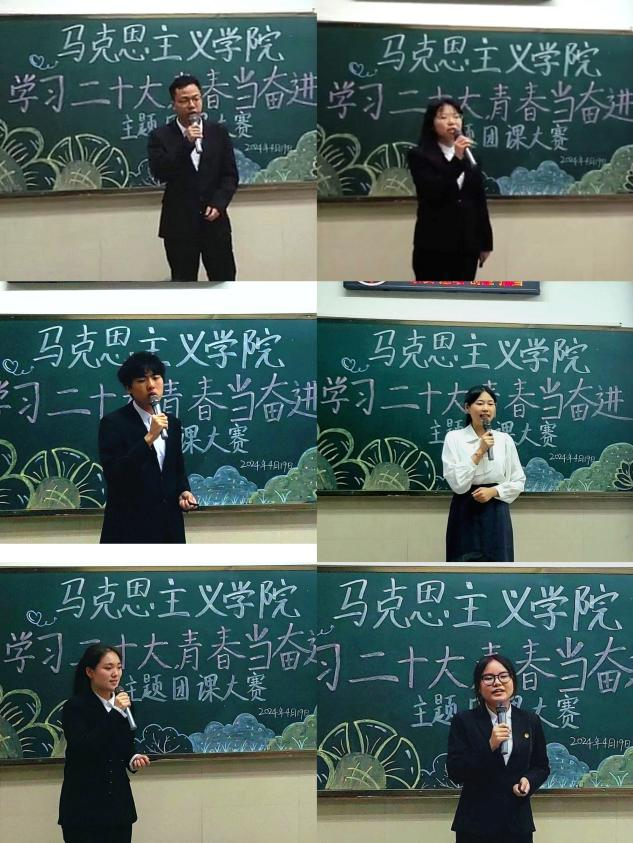 马克思主义学院
学习二十大,青春当奋进
主题 大赛
2024年4月19日
马克思主义学院
学习二十 青春当奋进
题团课大赛
2024年4月19日
马克思主义学院
学习二十 青春当奋进
课大赛
2024年4月19日
马克思主义学院
学习二十大 青春当奋进
主题 课大赛
2024年4月19日
马克思主义学院
学习二十大,青春当奋
主题团课大赛
2024年4月19日
马克思主义学院
习二十大,青春当奋
主题 课大赛
2024年4月19日